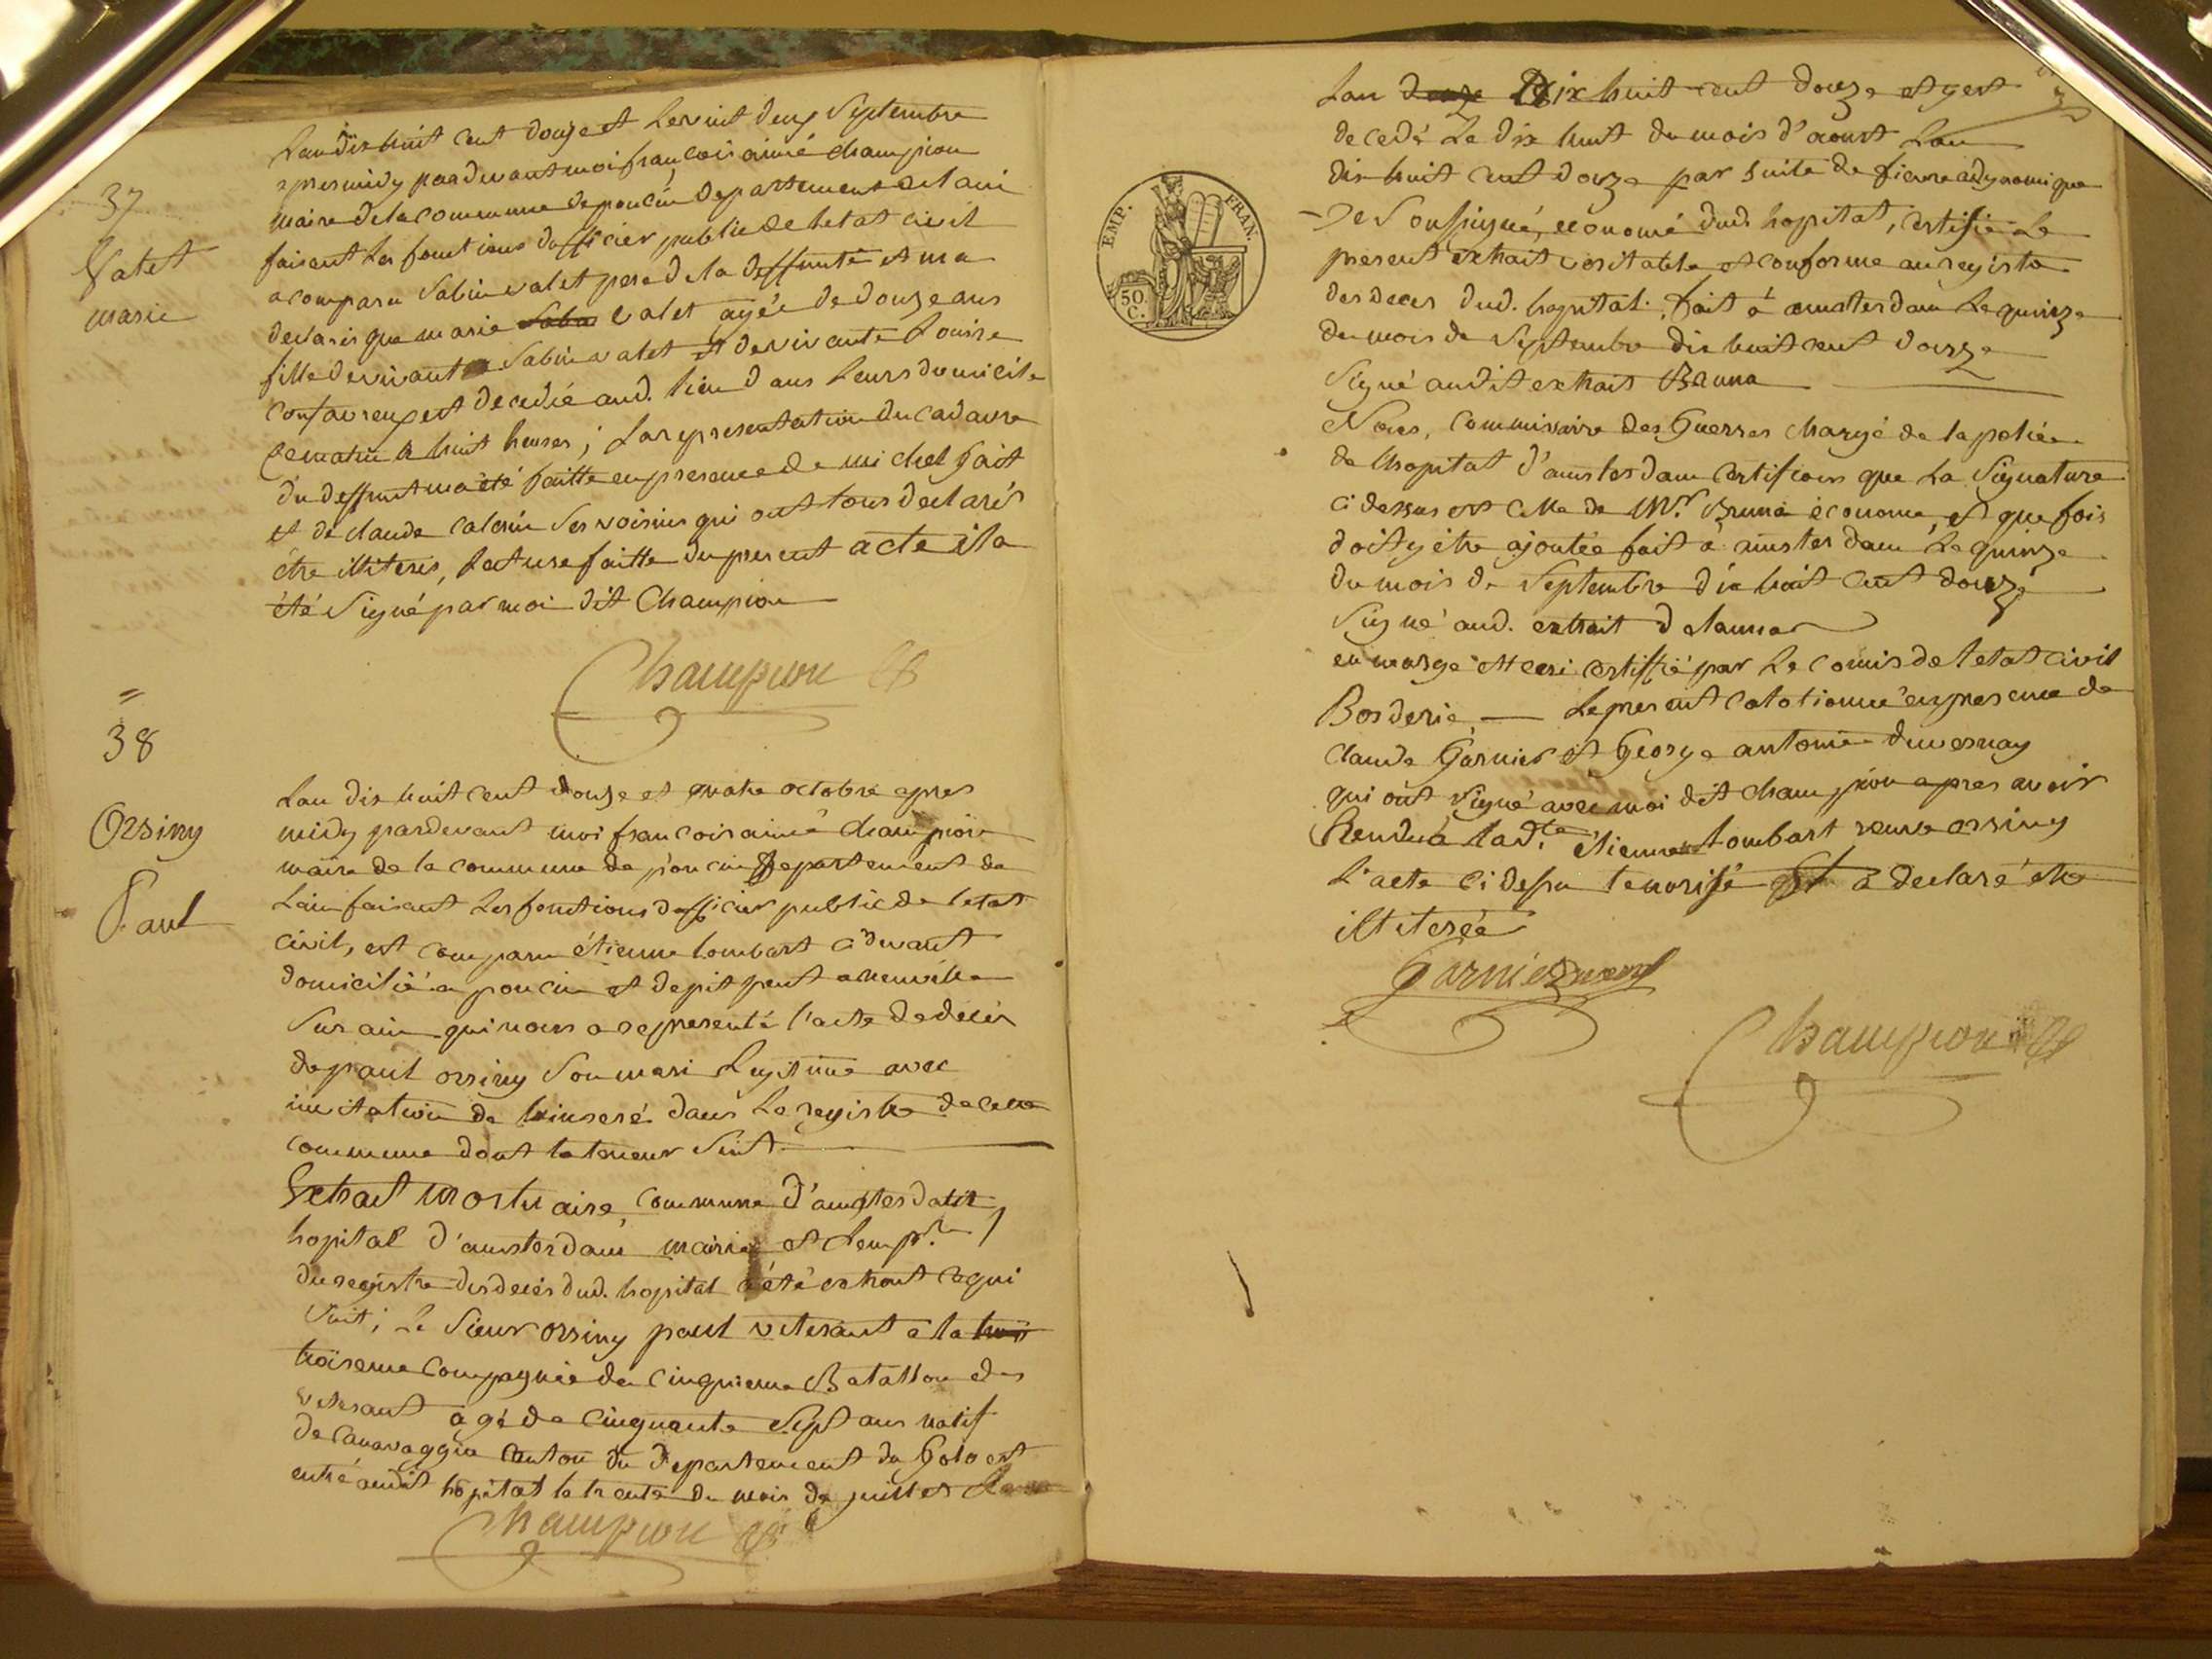 37
Vatet
marie
Lan dix huit cent douze et le vint deux Septembre
apres midy par devant moi francois aimé champion
maire de la commune de poncin departement de lain
faisant les fonctions dofficier public de letat civil
a comparu Sabin vatet pere de la deffunte et m a
declaré que marie vatet agée de douze ans
fille de vivant Sabin vatet et de vivante Louise
est decedée aud. lieu dans leurs domicile
ce matin a huit heures ; la representation du cadavre
du deffunt m a été faitte en presence de michel
et de claude ses voisins qui ont tous declarés
être illiterés, lecture faitte du present acte il a
été Signé par moi dit Champion
Champion
38
Orsiny
Paul
Lan dix huit cent douze et quatre octobre apres
midy pardevant moi francois aimé champion
maire de la commune de poncin departement de
Lain faisant les fonctions dofficier public de letat
civil, est comparu étienne lombart cidevant
domicilié a poncin et a neuville
Sur ain qui nous a representé l'acte de decés
de paul orsiny Son mari Legitime avec
invitation de linseré dans le registre de cette
commune dont la teneur Suit
Extrait mortuaire, commune d'amsterdam
hopital d'amsterdam
du registre des decés dud. hopital a été extrait ce qui
Suit ; Le Sieur orsiny paul veterant a la
troisieme compagnie du cinquieme Batallon des
veterant agé de cinquante Sept ans natif
de canavaggia canton du departement du Golo est
entré audit hopital le trente du mois de juillet
Champion
EMP. FRAN.
50. C.
Lan Dix huit cent douze et y est
decedé Le dix huit du mois d'aoust Lan
dix huit cent douze par suite de fievre adynamique
Je Soussigné, econome dud hopital, certifie Le
present extrait veritable et conforme au registre
des deces dud. hopital. fait à amsterdam Le quinze
du mois de Septembre dix huit cent douze
Signé audit extrait Bruna
Nous, commissaire des Guerres chargé de la police
de lhopital d'amsterdam certifions que La Signature
ci dessus est celle de Mr. Bruna économe, et que fois
doit y être ajoutée fait a amsterdam Le quinze
du mois de Septembre dix huit cent douze
Signé aud. extrait
en marge est ecri certiffié par Le comis de letat civil
Borderie — Le present en presence de
claude Garnier et George antoine duvernay
qui ont Signé avec moi dit champion apres avoir
Rendu a lad.te étienne lombart veuve orsiny
L'acte ci dessu tenorisé et a declaré etre
illiterée
Garnier
Champion